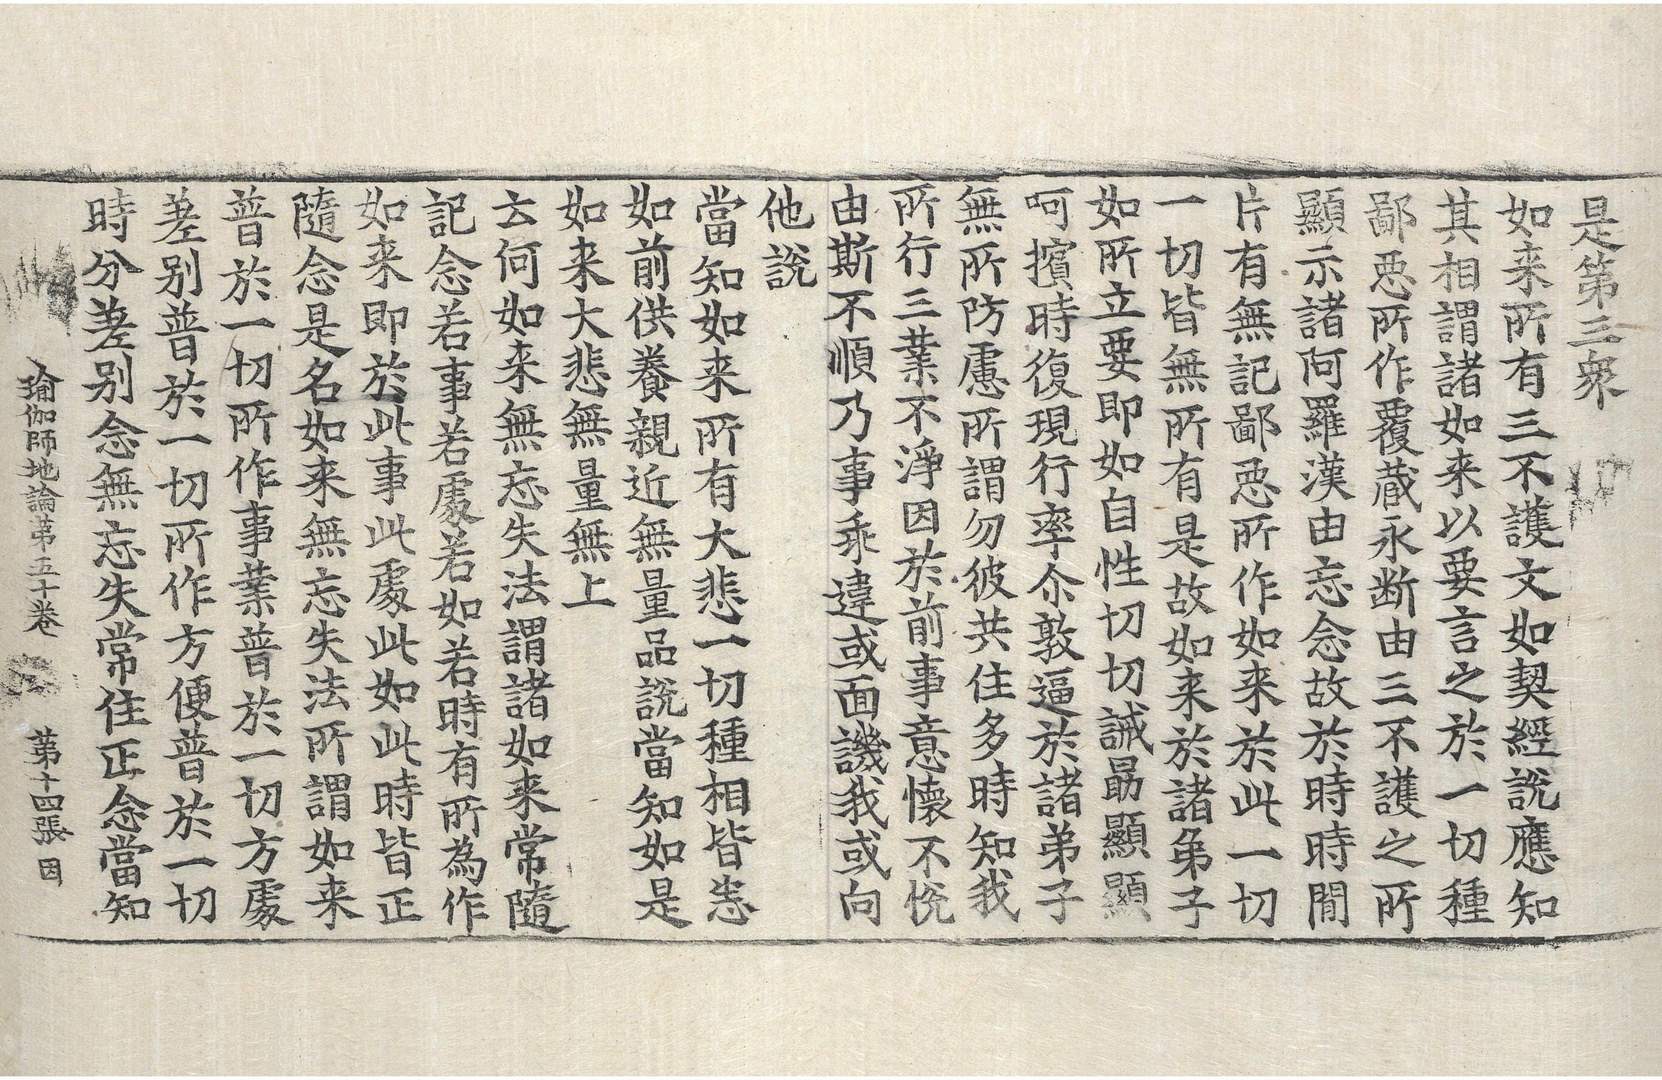 是第三衆
如来所有三不護文如契經說應知
其相謂諸如来以要言之於一切種
鄙惡所作覆蔵永断由三不護之所
顯示諸阿羅漢由忘念故於時時閒
片有無記鄙惡所作如来於此一切
一切皆無所有是故如来於諸弟子
如所立要即如自性切切誡勗顯顯
呵擯時復現行率尒敦逼於諸弟子
無所防慮所謂勿彼共住多時知我
所行三業不淨因於前事意懷不悅
由斯不順乃事乖違或面譏我或向
他說
當知如来所有大悲一切種相皆悉
如前供養親近無量品說當知如是
如来大悲無量無上
云何如来無忘失法謂諸如来常隨
記念若事若處若如若時有所為作
如来即於此事此處此如此時皆正
隨念是名如来無忘失法所謂如来
普於一切所作事業普於一切方處
差别普於一切所作方便普於一切
時分差别念無忘失常住正念當知
瑜伽師地論第五十卷 第十四張 因